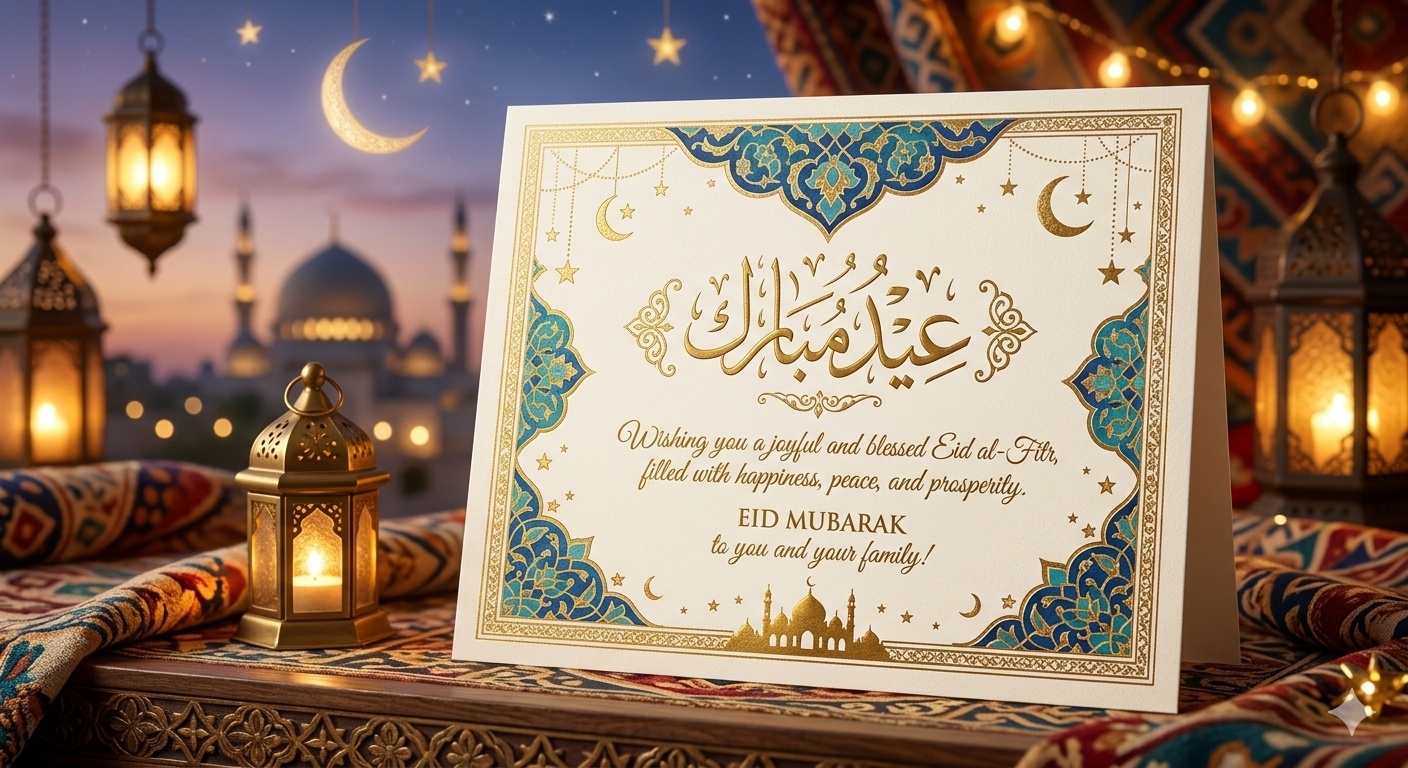 عِيْدُ مُبَارَك
Wishing you a joyful and blessed Eid al-Fitr,
filled with happiness, peace, and prosperity.
EID MUBARAK
to you and your family!